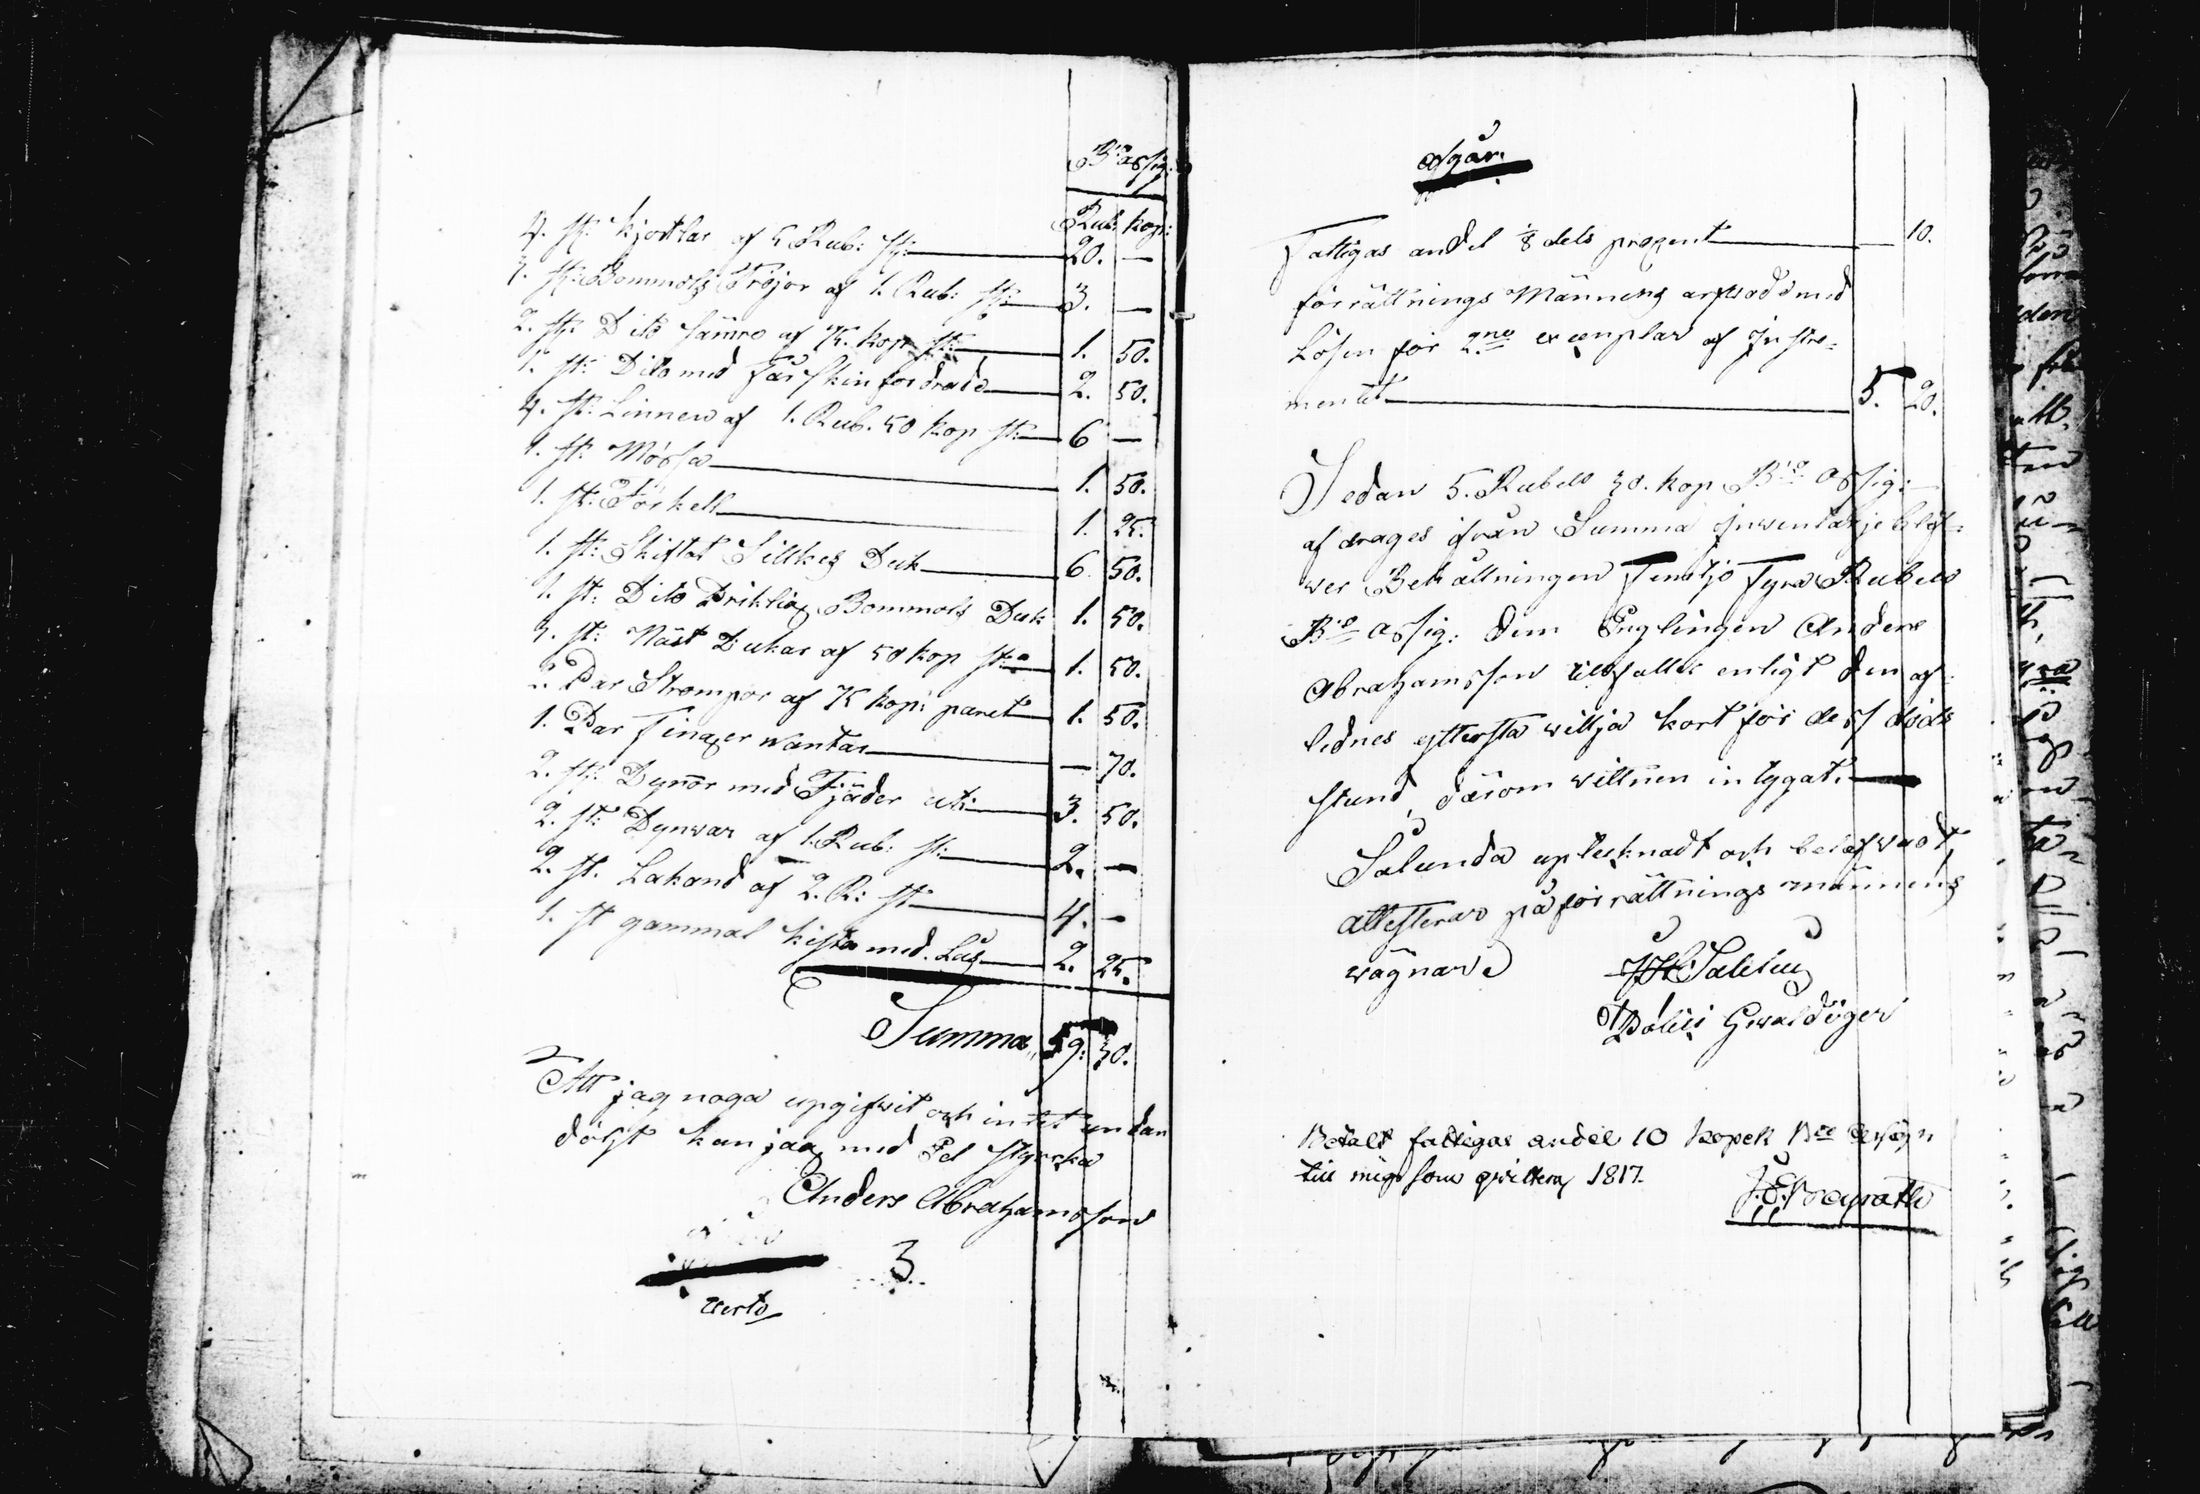 B:co Assig:
Rub: kop:
4. st: kjortlar af 5 Rub: st: 20. —
3. st: Bommols Tröjor af 1. Rub: st: 3. —
2. st: Dito sämre af 75. kop st: 1. 50.
1. st: Dito med fårskin fordrade 2. 50.
4. st: Linnen af 1. Rub. 50 kop st: 6 —
1. st: Mössa 1. 50.
1. st: Förkell 1. 25.
1. st: Skiftat Silkes Duk 6 50.
1. st: Dito Bommols Duk 1. 50.
3. st: Näst Dukar af 50 kop st: 1. 50.
2. Par Strompor af 75 kop: paret 1. 50.
1. Par Finger wantar — 70.
2. st: Dynor med Fjäder uti 3. 50.
2. st: Dynwar af 1. Rub: st: 2. —
2. st. Lakand af 2. R: st: 4. —
1. st gammal kista med Lås 2. 25.
Summa 59: 30.
Att jag noga upgifwit och intet undan
dölgt kan jag med Ed styrcka
Anders Abrahamsson
3
verto
Afgår.
Fattigas andel 1/8 dels prozent — 10.
förrättnings Männens arfwode med
Lösen för 2:ne exemplar af Instru=
mentet 5. 20.
Sedan 5. Rubel 30. kop B:co Assig:
afdrages ifrån Summa Inwentarje blif=
wer Behållningen Femtjo Fyra Rubel
B:co Assig: dem Ynglingen Anders
Abrahamsson tillfaller enligt den af=
lednes yttersta willja kort för dess döds
stund, därom wittnen intygat.
Salunda upteknadt och befwadt,
attesterar på förrättnings männens
wägnar
Salelius
Polici Gewaldiger
Betalt fattigas andel 10 kopek B:co Assign
till mig som qvitteras 1817.